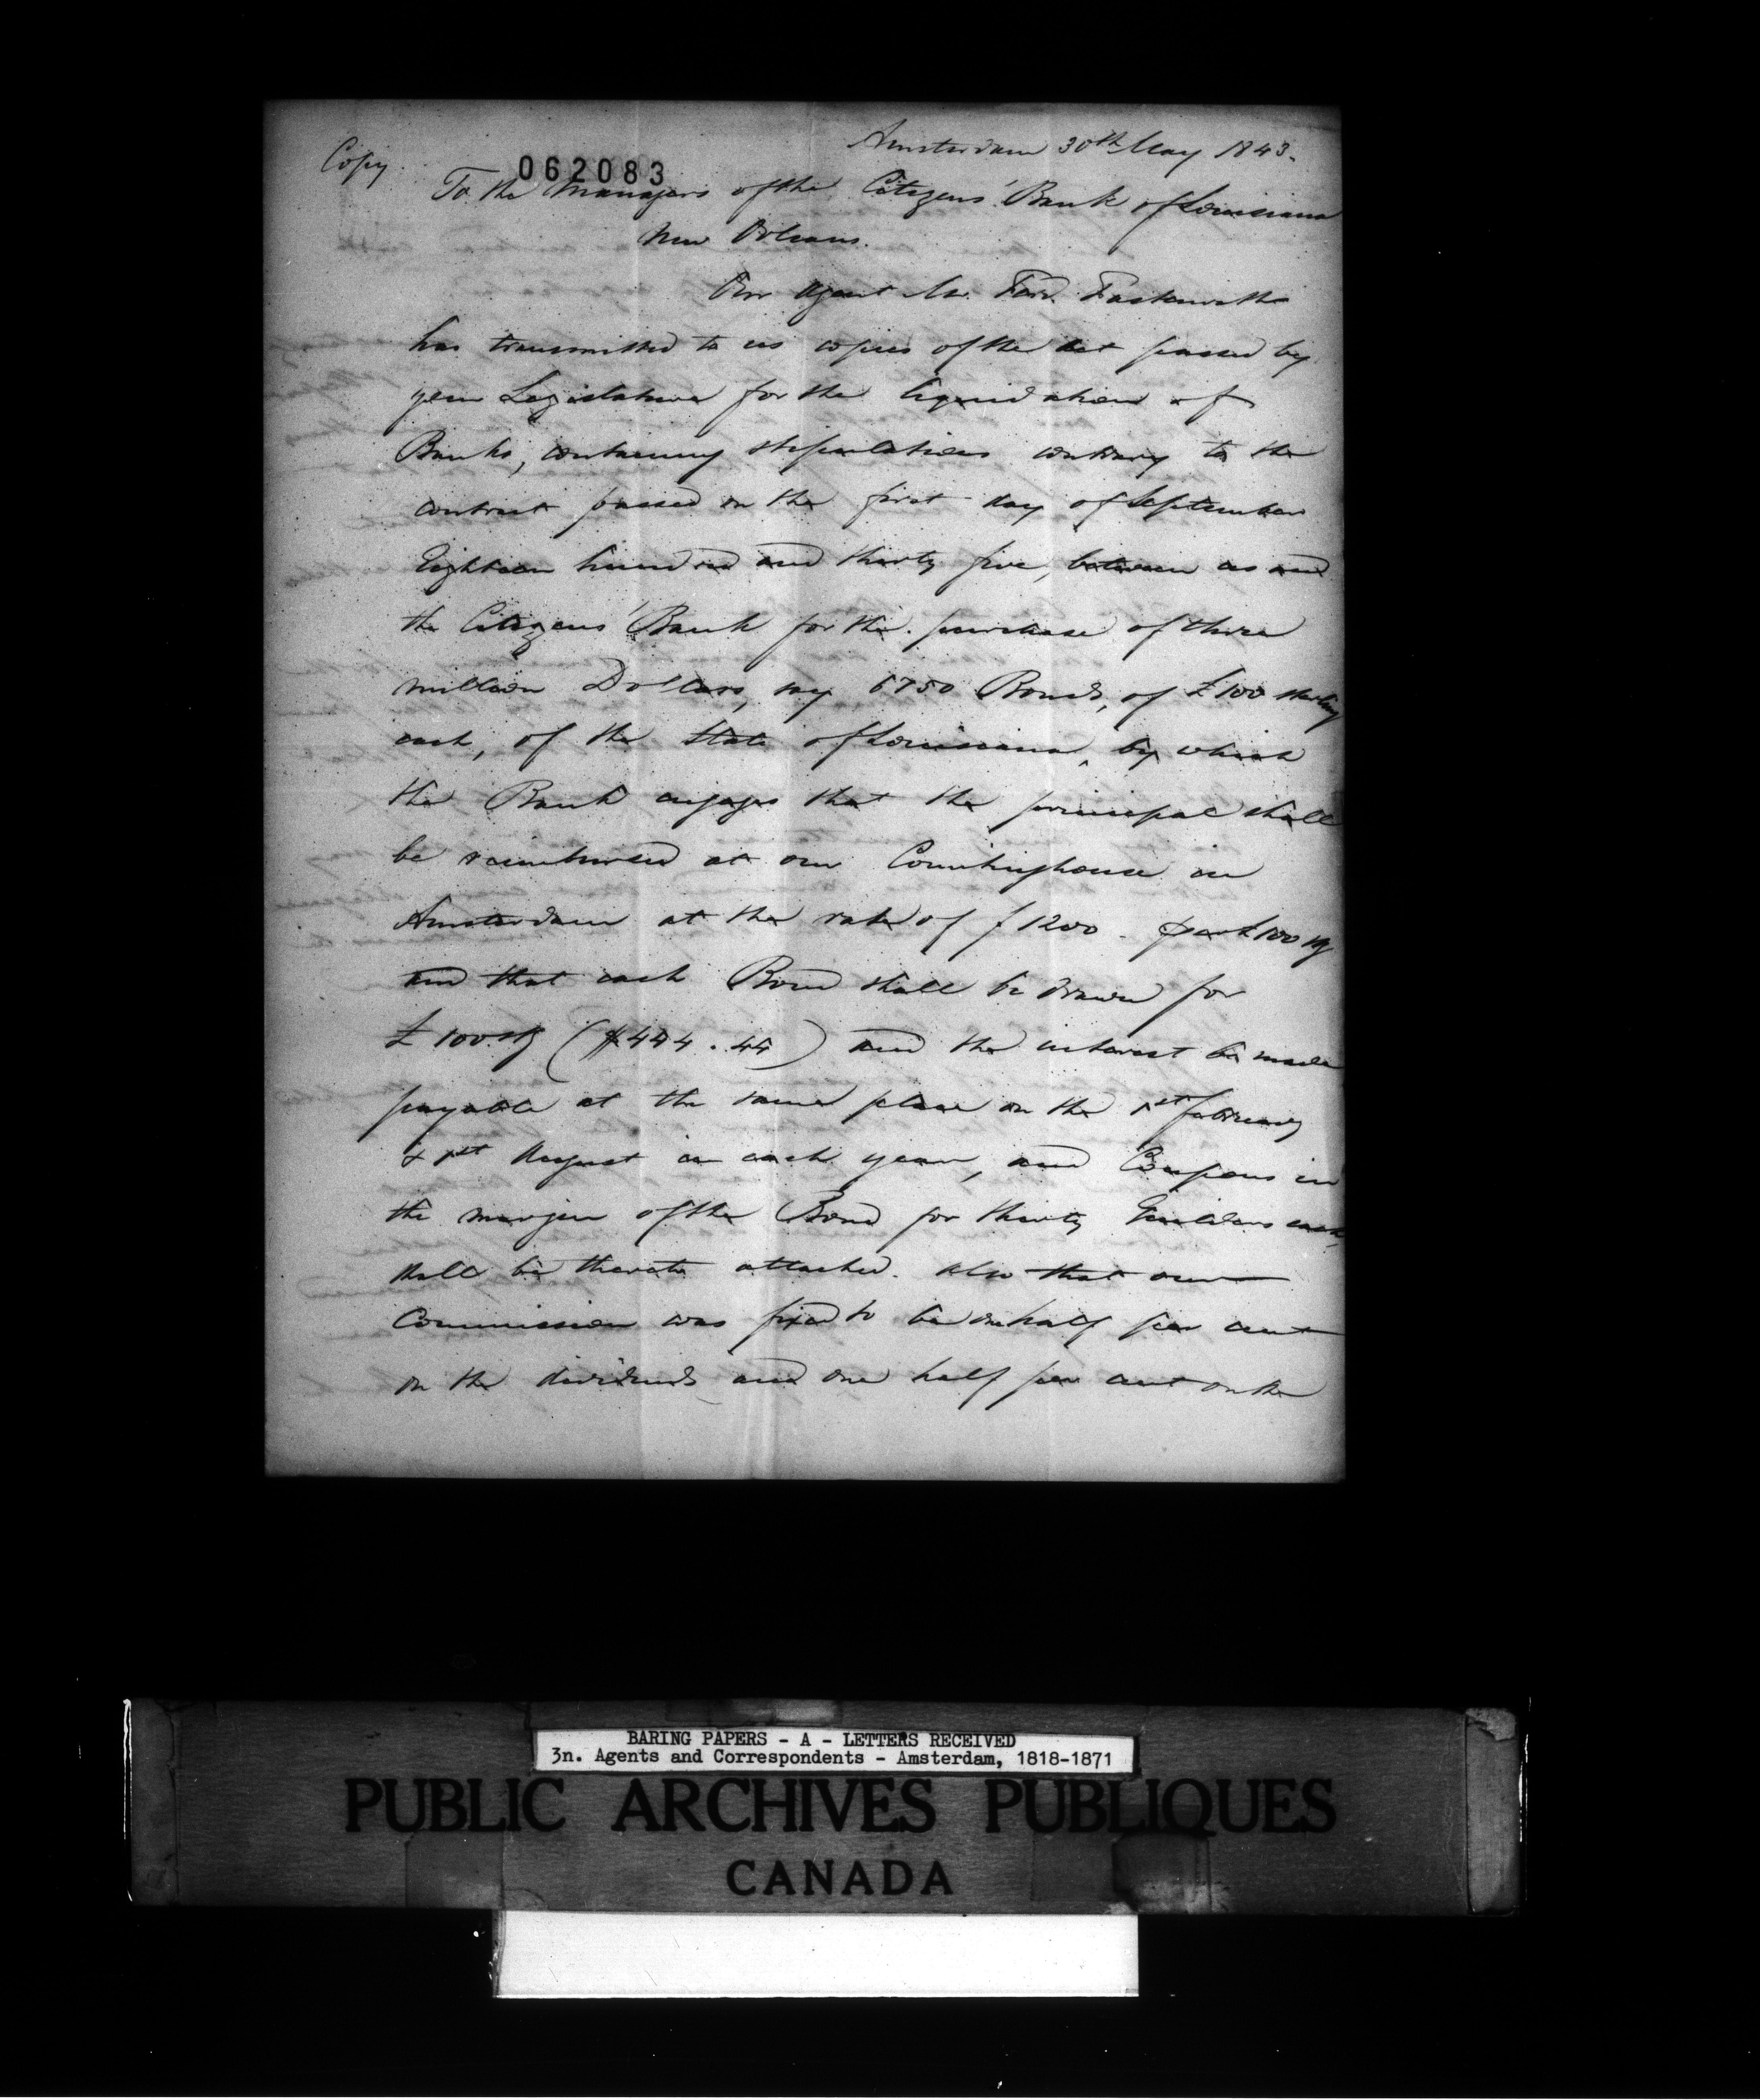 Copy.
062083
Amsterdam 30th May 1843.
To the Managers of the Citizens' Bank of Louisiana
New Orleans.
Our Agent Mr.
has transmitted to us copies of the act passed by
your Legislature for the liquidation of
Banks, containing stipulations contrary to the
contract passed on the first day of September
Eighteen hundred and thirty five, between us and
the Citizens' Bank for the purchase of three
million Dollars, say 6750 Bonds, of £100 sterling
each, of the State of Louisiana, by which
the Bank engages that the principal shall
be reimbursed at our Countinghouse in
Amsterdam at the rate of f 1200 . per £100 stg
and that each Bond shall be drawn for
£ 100 stg ($444.44) and the interest be made
payable at the same place on the 1st february
& 1st August in each year, and Coupons in
the margin of the Bond for thirty Guilders each,
shall be thereto attached. Also that our
Commission was fixed to be one half per cent
on the dividends and one half per cent on the
BARING PAPERS - A - LETTERS RECEIVED
3n. Agents and Correspondents - Amsterdam, 1818-1871
PUBLIC ARCHIVES PUBLIQUES
CANADA